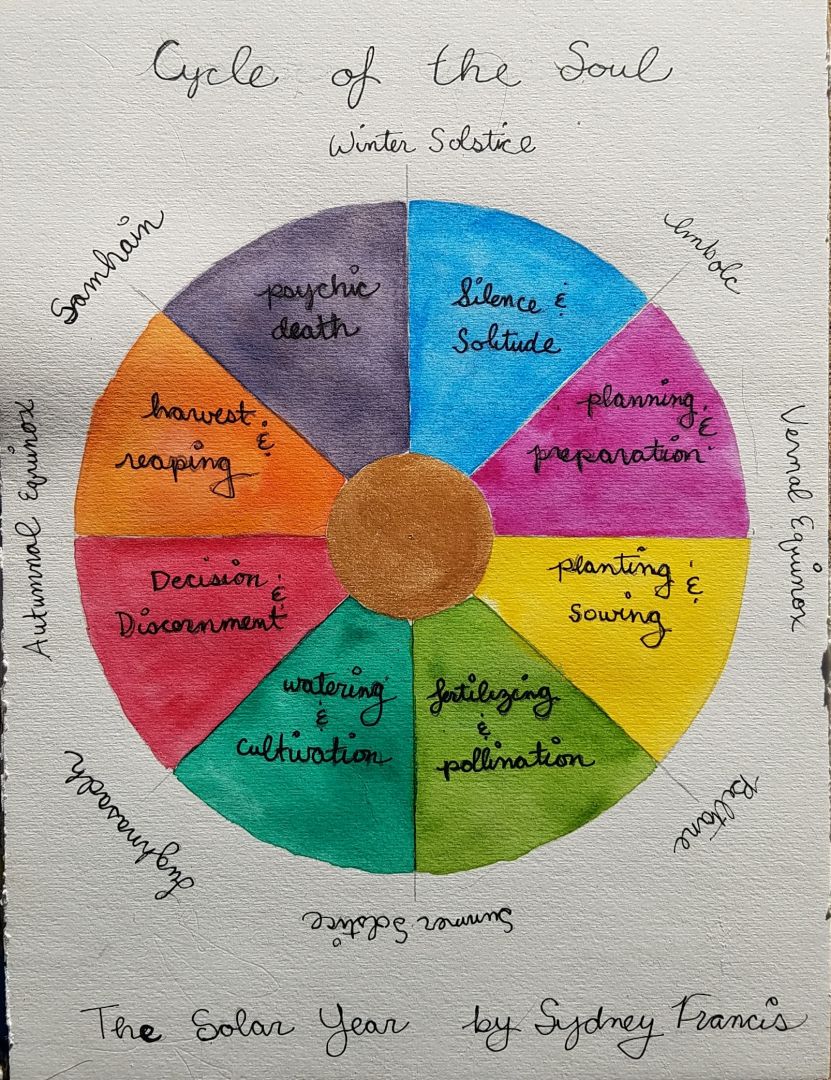 Cycle of the Soul
Winter Solstice
Imbolc
Vernal Equinox
Beltane
Summer Solstice
Lughnasadh
Autumnal Equinox
Samhain
Silence &
Solitude
planning &
preparation
planting &
Sowing
fertilizing
&
pollination
watering
&
cultivation
Decision &
Discernment
harvest &
reaping
psychic
death
The Solar Year by Sydney Francis